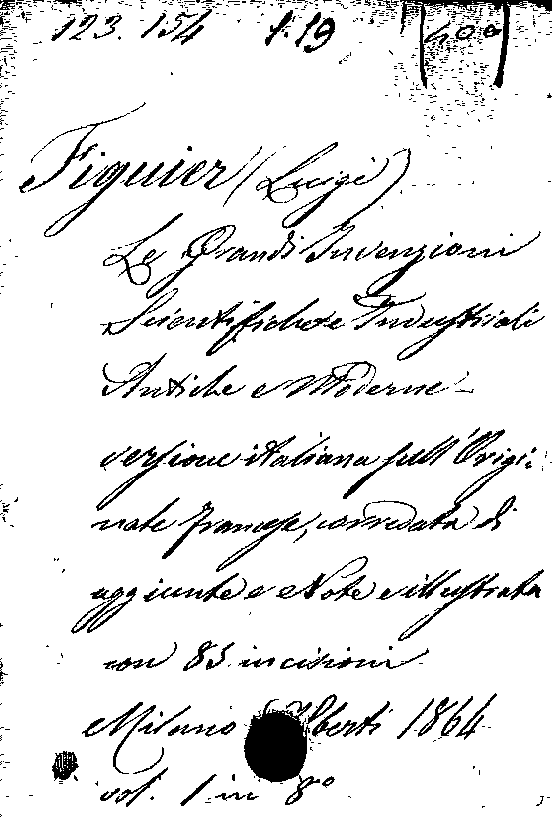 123. 154 1.19 (400)
Figuier (Luigi)
Le Grandi Invenzioni
Scientifiche e Industriali
Antiche e Moderne
versione italiana sull'Origi-
nale francese, corredata di
aggiunte e Note e illustrata
con 85 incisioni
Milano Alberti 1864
vol. 1 in 8°